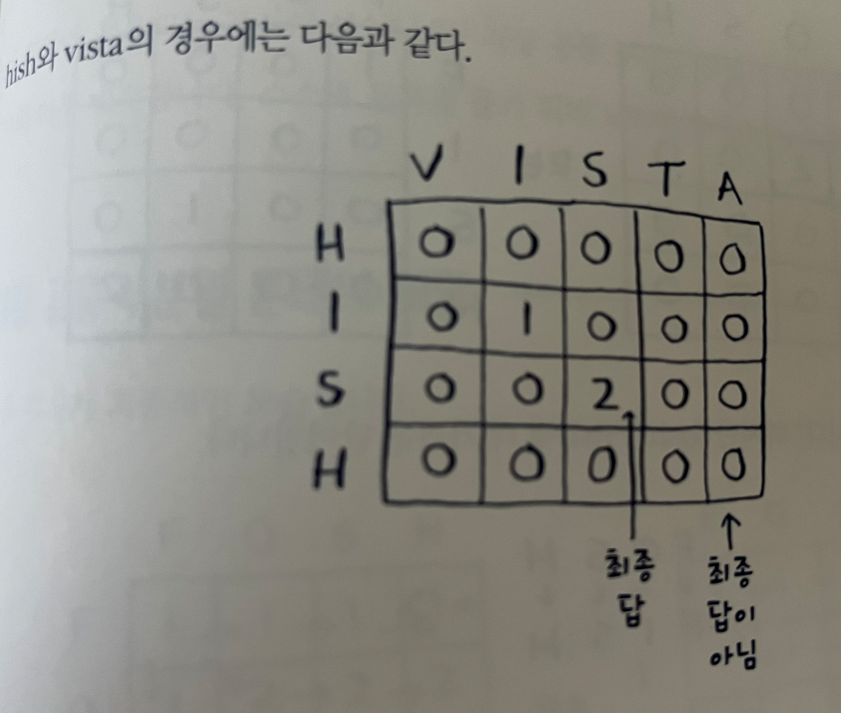 hish와 vista의 경우에는 다음과 같다.
V I S T A
H 0 0 0 0 0
I 0 1 0 0 0
S 0 0 2 0 0
H 0 0 0 0 0
최종 최종
답 답이
아님